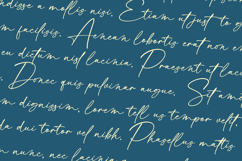 ndisse a mollis nisi. Etiam ut justo
m facilisis. Aenean lobortis erat non
eu dictum nisl lacinia. Praesent
s. Donec quis pulvinar augue. Sit am
m dignissim, lorem tell us tempor velt,
da dui tortor vel nibh. Phasellus mattis
m nunc, nec lacinia